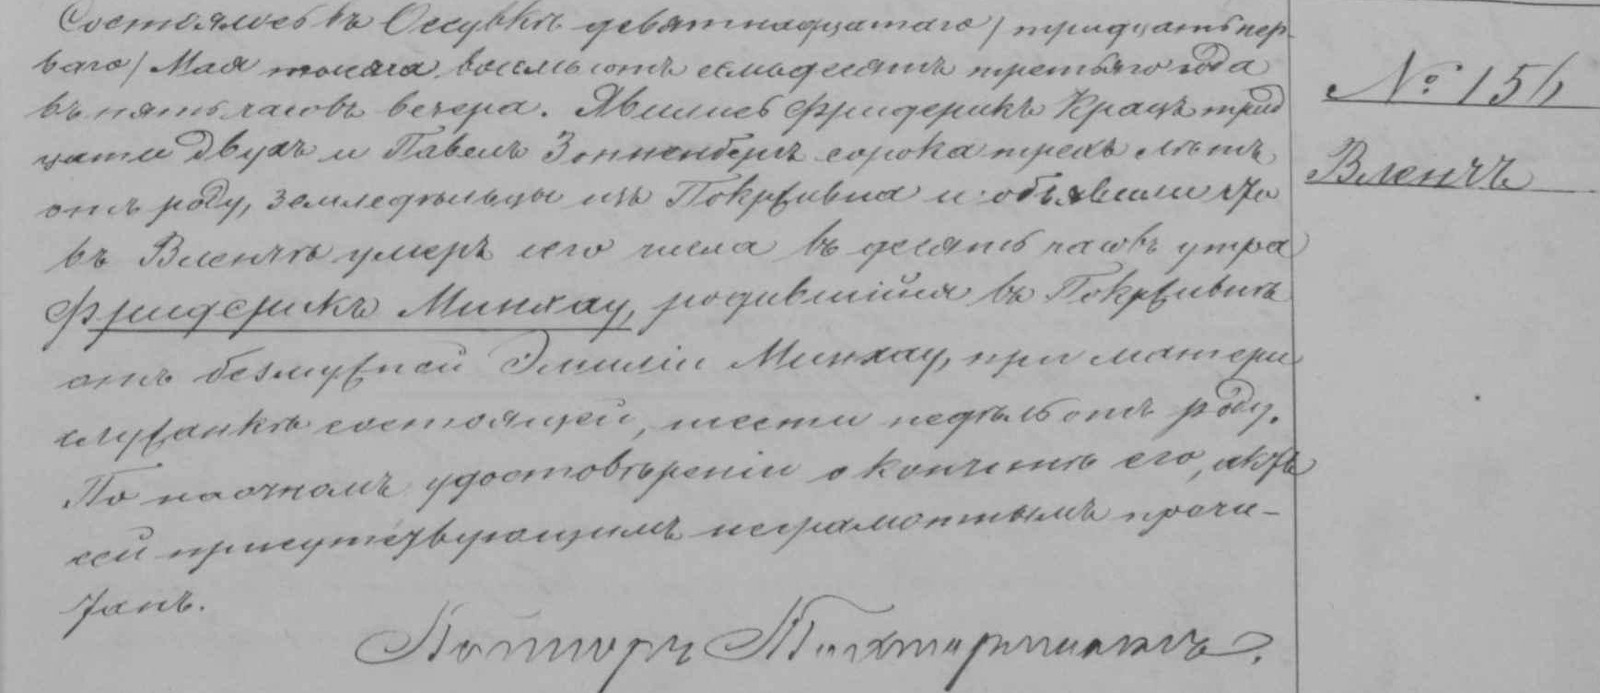 Состоялось въ Осувкѣ девятнадцатаго / тридцать пер-
ваго / Мая тысяча восемьсотъ семьдесятъ третьяго года
въ пять часовъ вечера. Явились Фридерикъ Крацъ трид
цати двухъ и Павелъ Зонненбергъ сорока трехъ лѣтъ
отъ роду, земледѣльцы изъ Покрживна и объявили что
въ Вленчѣ умеръ сего числа въ десять часовъ утра
Фридерикъ Минхау, родившійся въ Покрживнѣ
отъ безмужней Эмиліи Минхау, при матери
служанкѣ состоящей, шести недѣль отъ роду.
По наочномъ удостовѣреніи о кончинѣ его, актъ
сей присутствующимъ неграмотнымъ прочи-
танъ.
Пасторъ
№ 156
Вленчъ